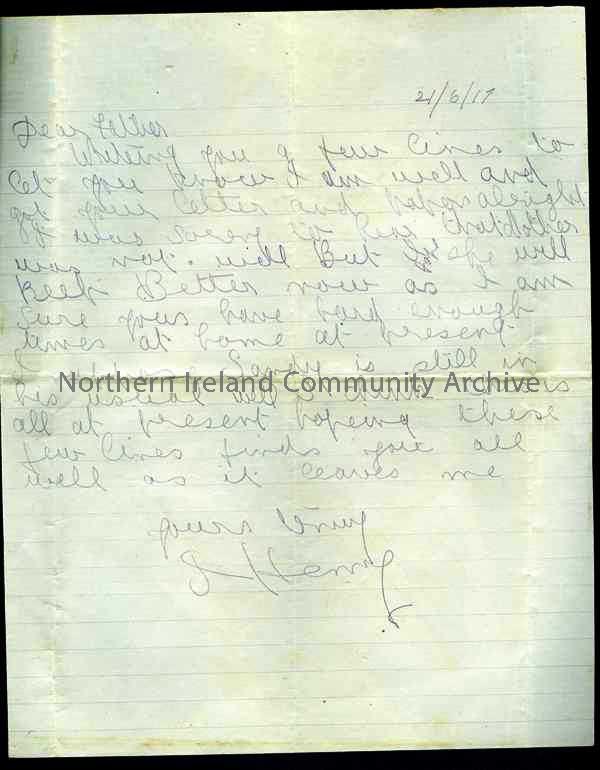 21/6/17
Dear Father
Writing you a few lines to
let you know I am well and
got your letter and papers alright
I was sorry to hear that Mother
was not well But she will
keep Better now as I am
sure yous have hard enough
times at home at present
Sandy is still in
his usual well I think this is
Northern Ireland Community Archive
all at present hopeing these
few lines finds you all
well as it leaves me
yours truly
Henry